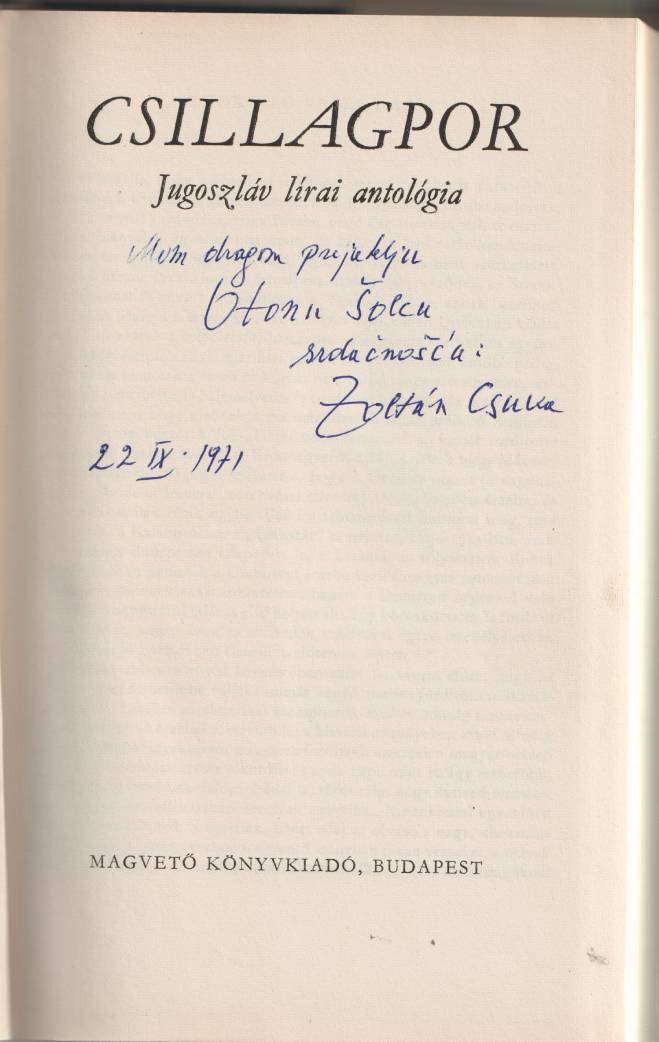 CSILLAGPOR
Jugoszláv lírai antológia
Mom dragom prijatelju
Otonu Šolcu
srdačnošću:
Zoltán Csuka
22 IX. 1971
MAGVETŐ KÖNYVKIADÓ, BUDAPEST